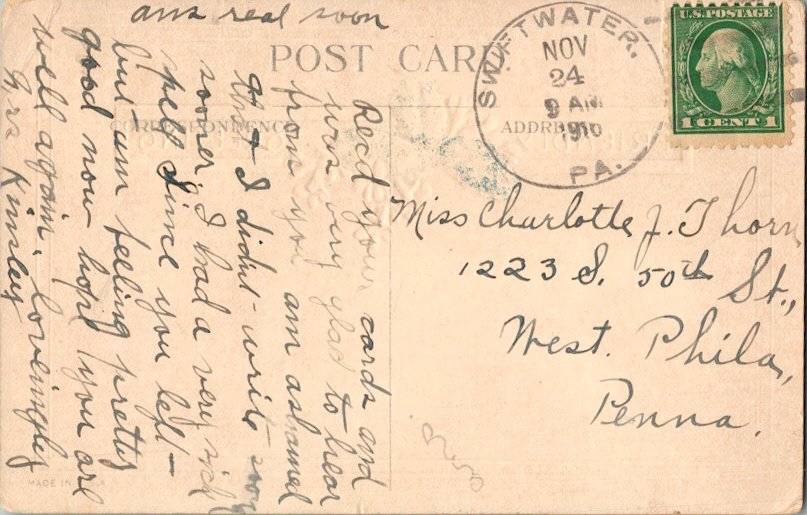 ans real soon
POST CARD.
SWIFTWATER,
NOV
24
9 AM
1916
PA.
U.S. POSTAGE
1 CENT 1
CORRESPONDENCE
ADDRESS
Miss Charlotte J. Thorn
1223 S. 50th St.,
West. Phila,
Penna.
Recd your cards and
was very glad to hear
from you am ashamed
that I didnt write soon
sooner, I had a very sick
spel since you left—
but am feeling pretty
good now hope you are
well again, loveingly
Kinsley
MADE IN